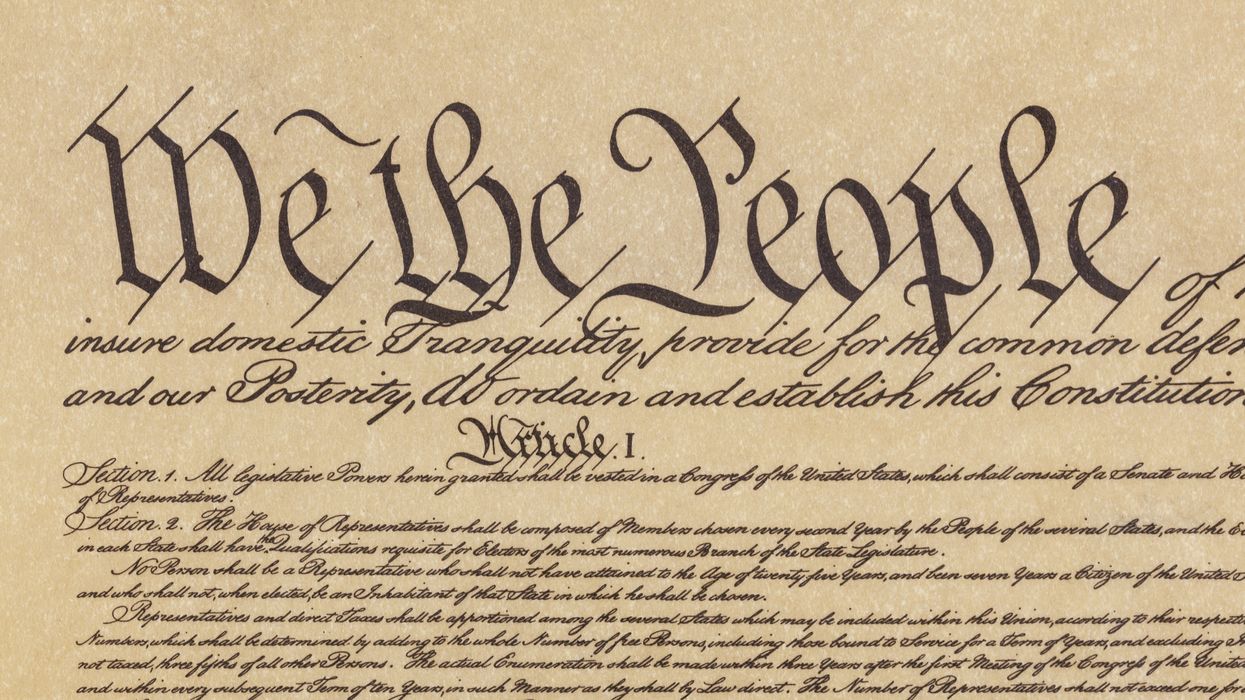 We the People of
insure domestic Tranquility, provide for the common defen
and our Posterity, do ordain and establish this Constitution
Article. I.
Section. 1. All legislative Powers herein granted shall be vested in a Congress of the United States, which shall consist of a Senate and Ho
of Representatives.
Section. 2. The House of Representatives shall be composed of Members chosen every second Year by the People of the several States, and the E
in each State shall have the Qualifications requisite for Electors of the most numerous Branch of the State Legislature.
No Person shall be a Representative who shall not have attained to the Age of twenty five Years, and been seven Years a Citizen of the United
and who shall not, when elected, be an Inhabitant of that State in which he shall be chosen.
Representatives and direct Taxes shall be apportioned among the several States which may be included within this Union, according to their respecti
Numbers, which shall be determined by adding to the whole Number of free Persons, including those bound to Service for a Term of Years, and excluding
not taxed, three fifths of all other Persons. The actual Enumeration shall be made within three Years after the first Meeting of the Congress of the United
and within every subsequent Term of ten Years, in such Manner as they shall by Law direct. The Number of Representatives shall not exceed one for